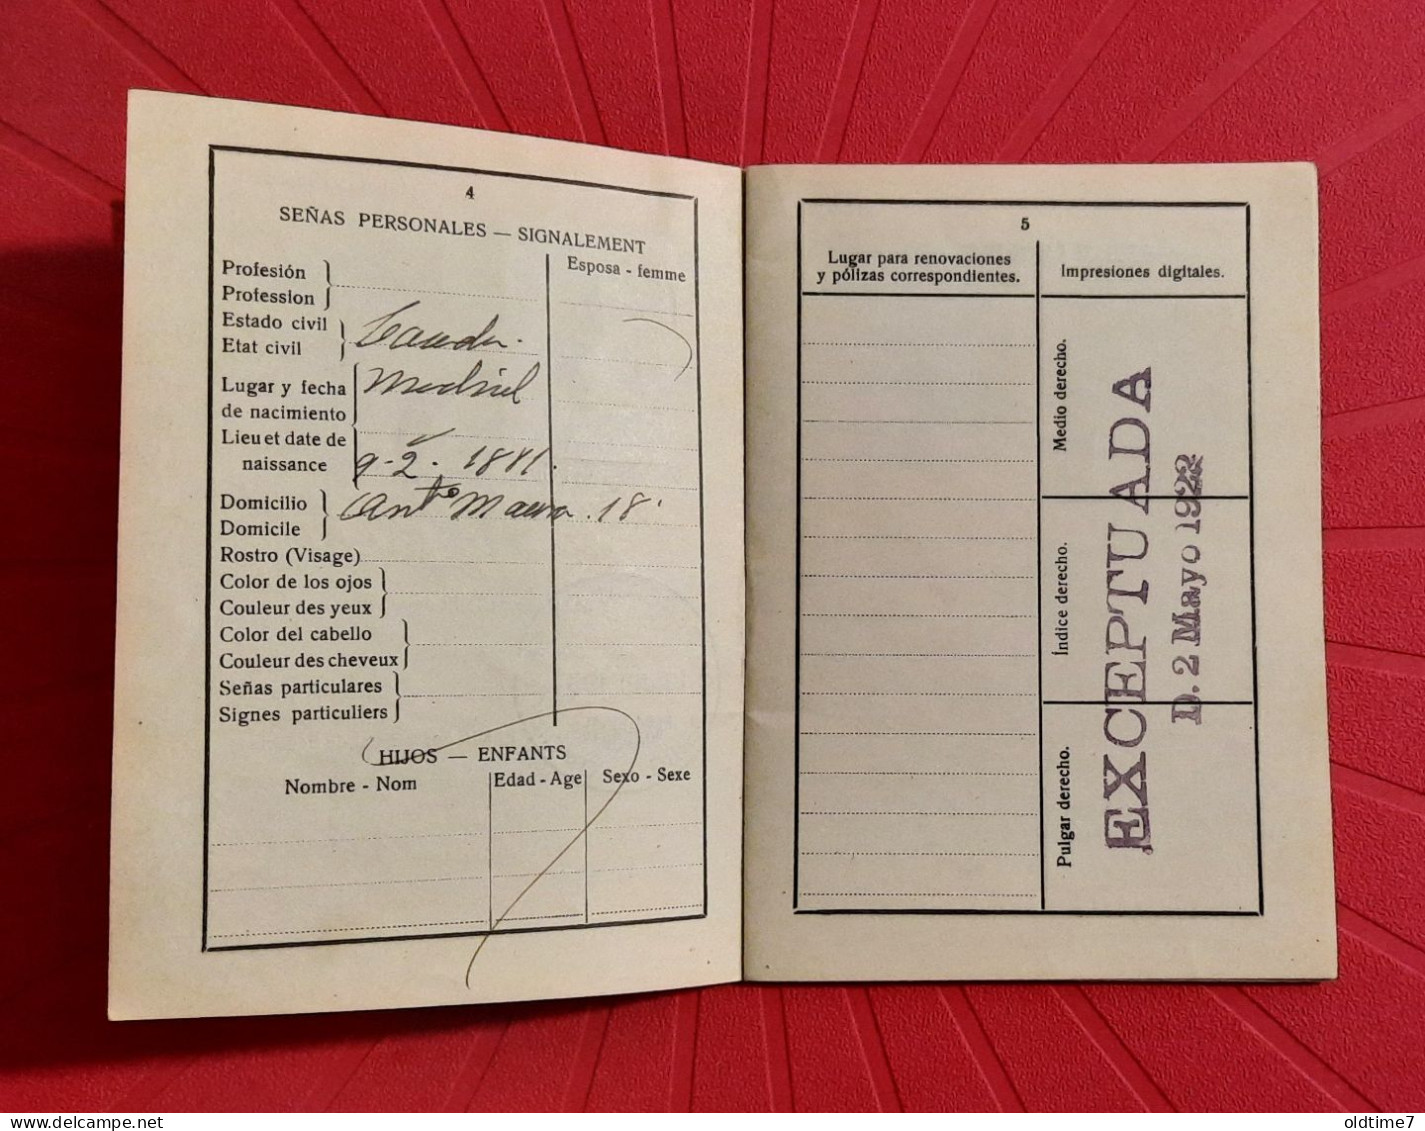 4
SEÑAS PERSONALES — SIGNALEMENT
Esposa - femme
Profesión
Profession
Estado civil
Etat civil
Lugar y fecha
de nacimiento
Madrid
Lieu et date de
naissance
9-2-1881.
Domicilio
Domicile
Antº Maura. 18
Rostro (Visage)
Color de los ojos
Couleur des yeux
Color del cabello
Couleur des cheveux
Señas particulares
Signes particuliers
HIJOS — ENFANTS
Nombre - Nom
Edad - Age
Sexo - Sexe
5
Lugar para renovaciones
y pólizas correspondientes.
Impresiones digitales.
Medio derecho.
Índice derecho.
Pulgar derecho.
EXCEPTUADA
D. 2 Mayo 1922
delcampe.net
oldtime7